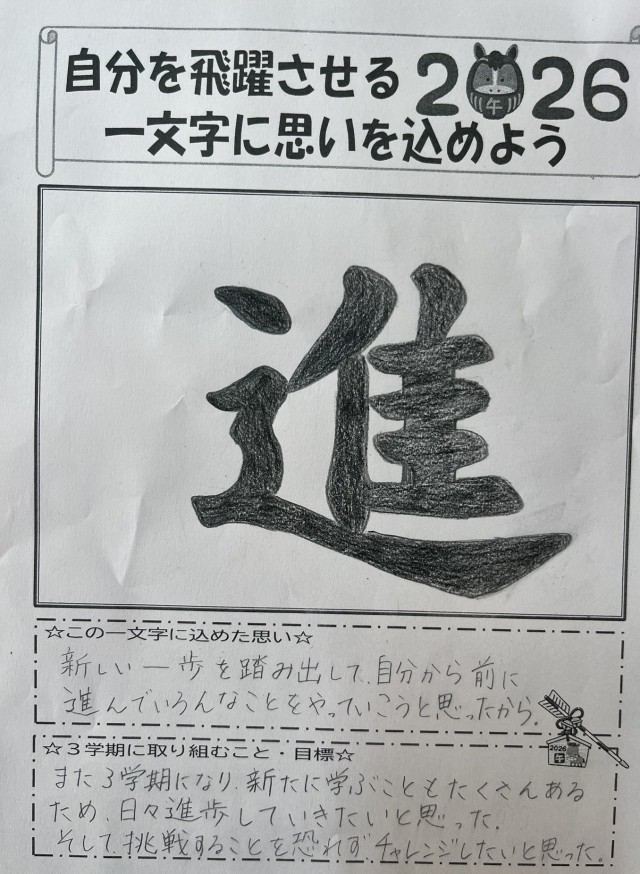 自分を飛躍させる2026
午
一文字に思いを込めよう
進
☆この一文字に込めた思い☆
新しい一歩を踏み出して、自分から前に
進んでいろんなことをやっていこうと思ったから。
2026
午
☆3学期に取り組むこと・目標☆
また3学期になり、新たに学ぶこともたくさんある
ため、日々進歩していきたいと思った。
そして、挑戦することを恐れず、チャレンジしたいと思った。